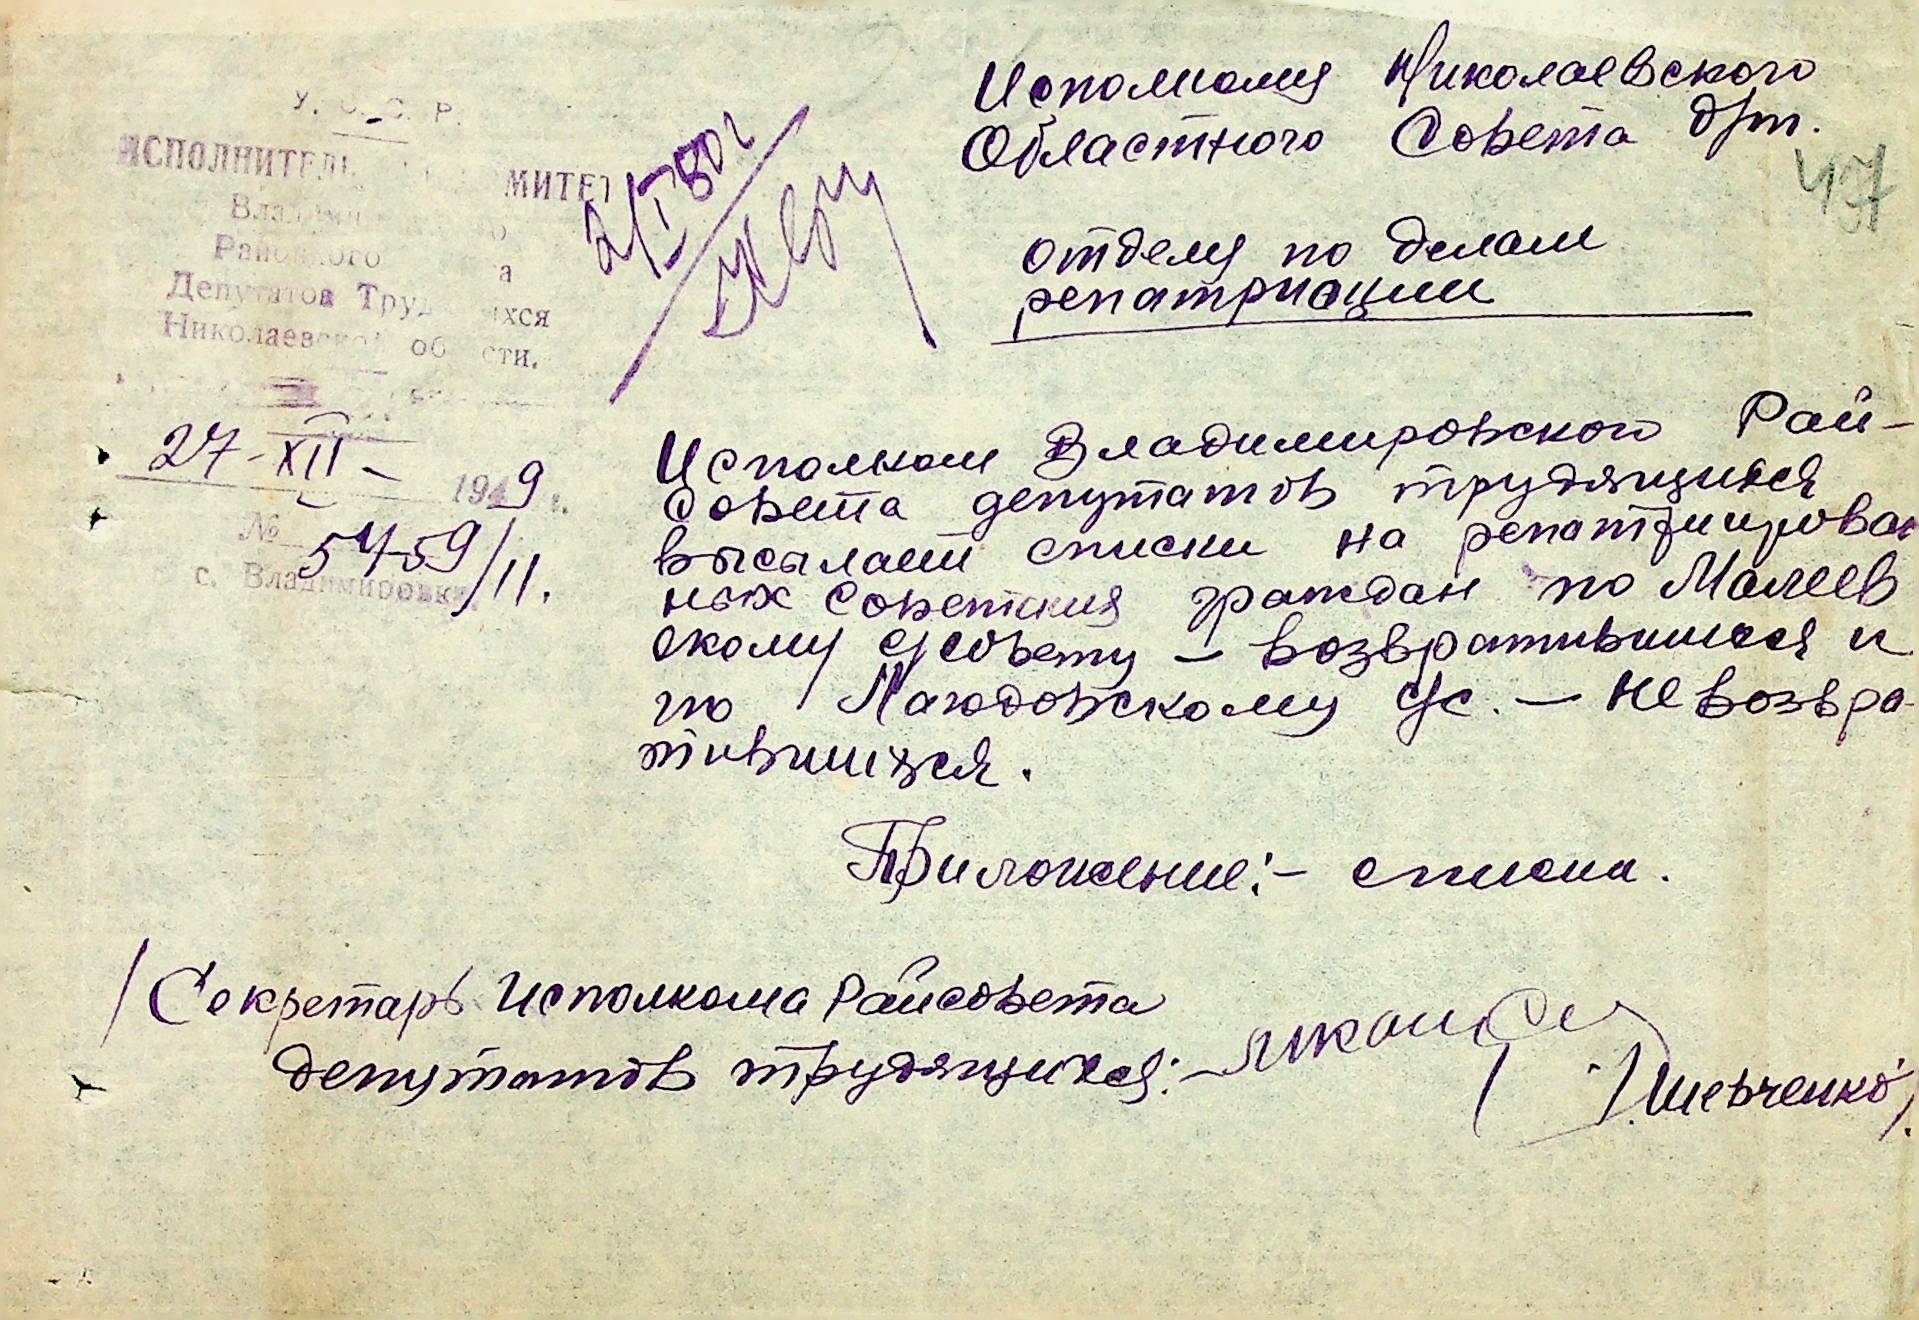 У. С. С. Р.
ИСПОЛНИТЕЛЬ МИТЕТ
Влади о
Районного а
Депутатов Труд ихся
Николаевской об сти.
27-XII- 1949 г.
№ 5459/11.
с. Владимировка
2/I 50г
47
Исполкому Николаевского
Областного Совета д/т.
отделу по делам
репатриации
Исполком Владимировского Рай-
Совета депутатов трудящихся
высылает списки на репатриирован
ных Советских граждан по Малеев
скому с/совету – возвратившихся и
по с/с. – не возвра-
тившихся.
Приложение:- списка.
/Секретарь Исполкома Райсовета
депутатов трудящихся:-
/Шевченко/.